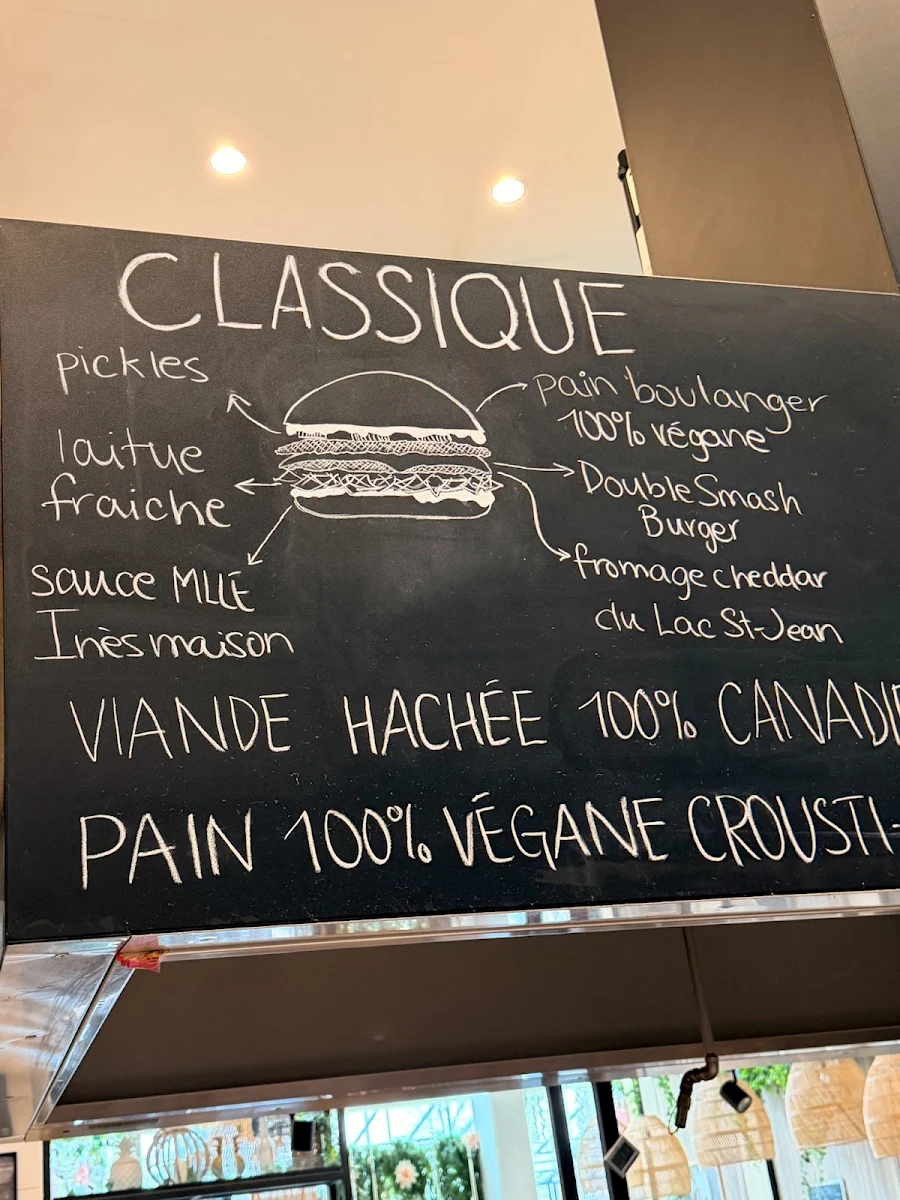 CLASSIQUE
pickles
laitue
fraiche
sauce MLLE
Inès maison
pain boulanger
100% végane
Double Smash
Burger
fromage cheddar
du Lac St-Jean
VIANDE HACHÉE 100%
PAIN 100% VÉGANE CROUSTI-